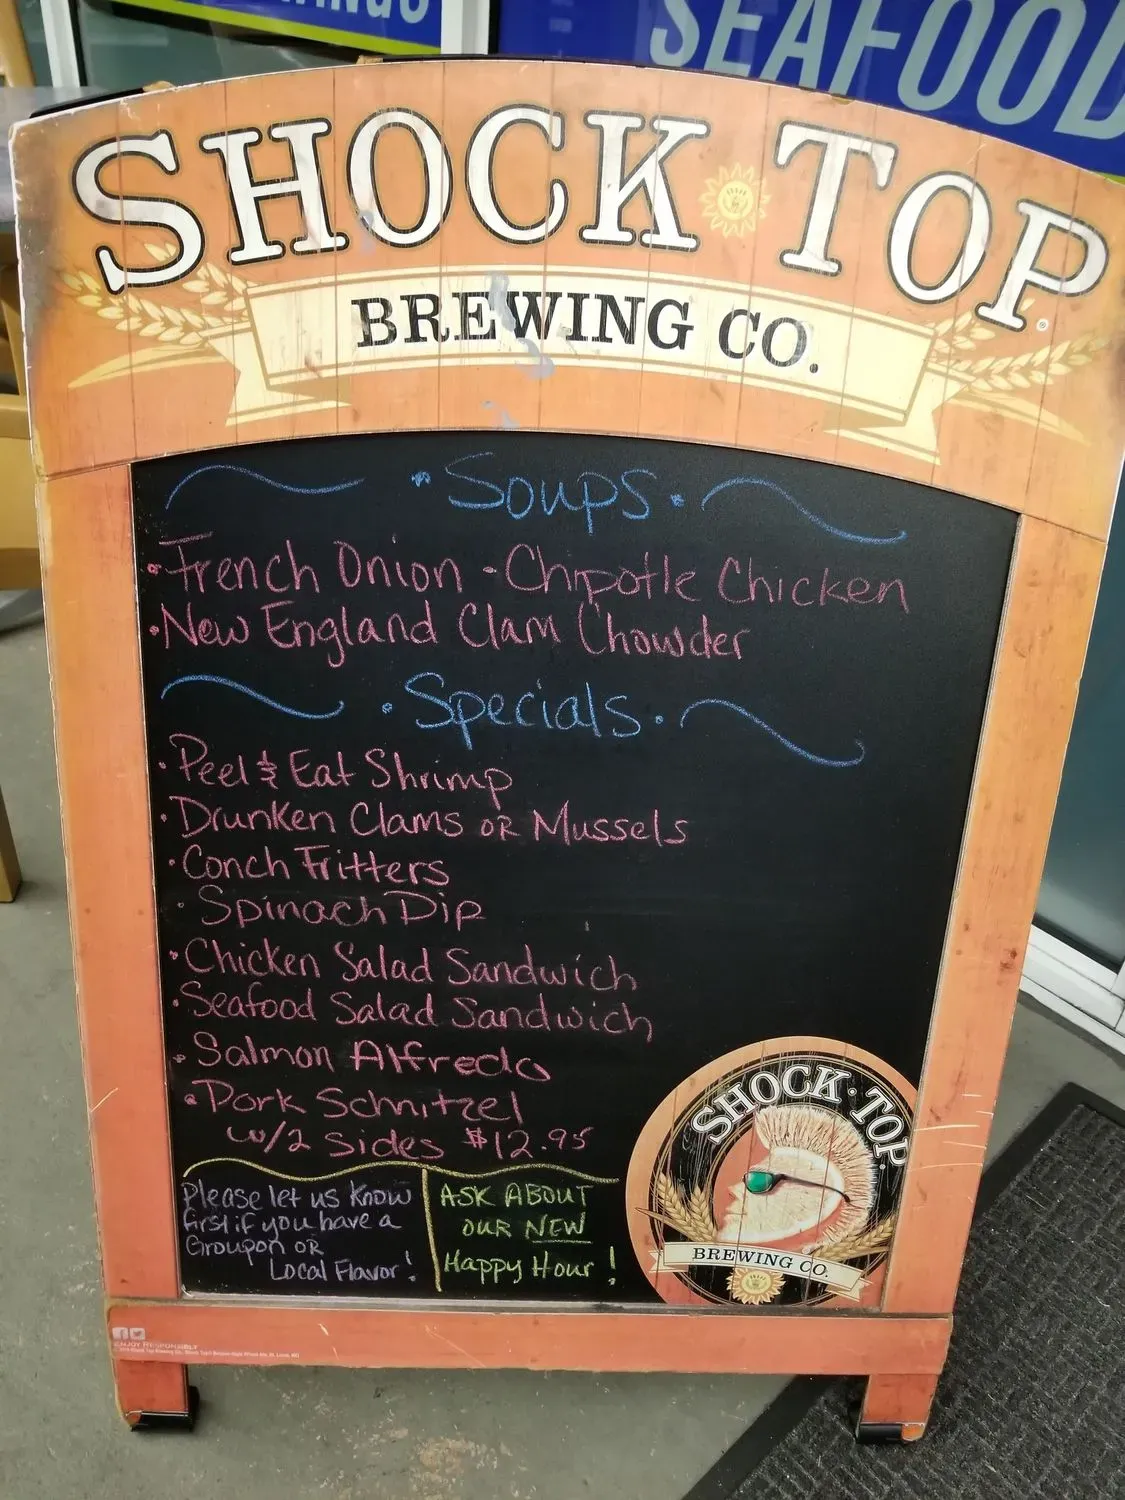 SEAFOOD
SHOCK TOP
BREWING CO.
·Soups·
·French Onion -Chipotle Chicken
·New England Clam Chowder
·Specials·
·Peel & Eat Shrimp
·Drunken Clams or Mussels
·Conch Fritters
·Spinach Dip
·Chicken Salad Sandwich
·Seafood Salad Sandwich
·Salmon Alfredo
·Pork Schnitzel
w/2 sides $12.95
Please let us know
first if you have a
Groupon or
Local Flavor!
ASK ABOUT
OUR NEW
Happy Hour!
SHOCK·TOP
BREWING CO.
ENJOY RESPONSIBLY